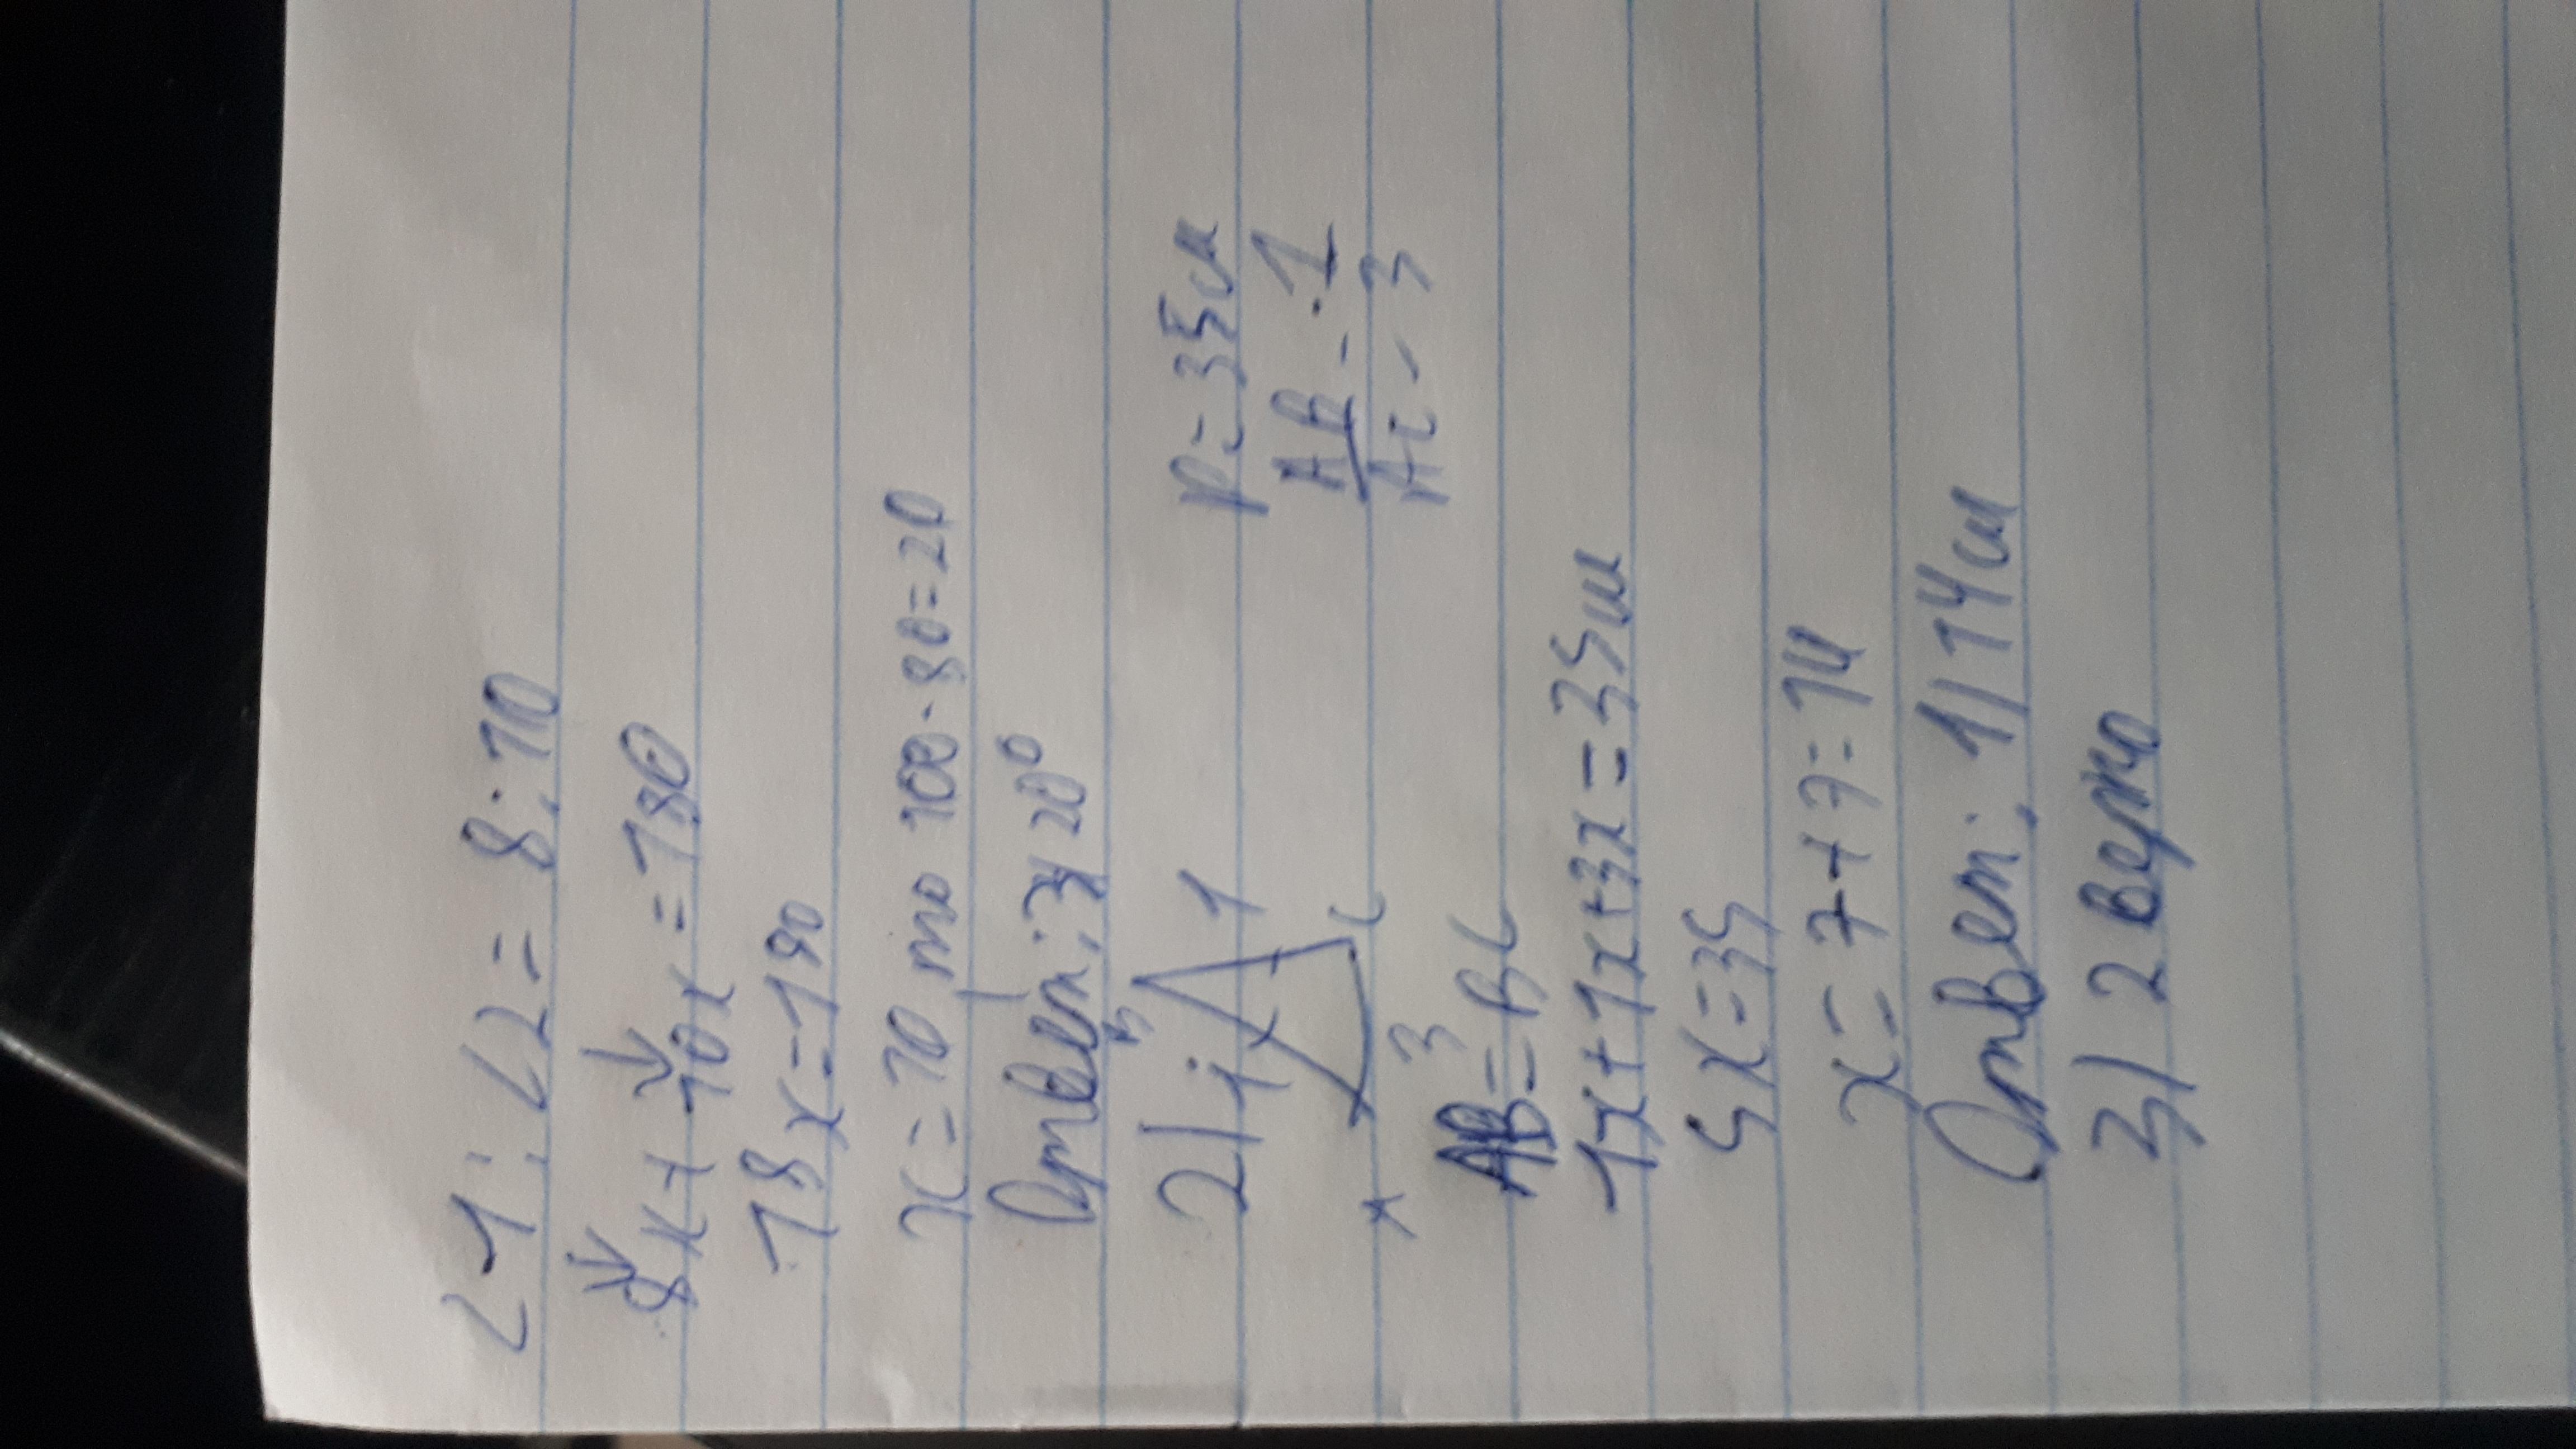 ∠1:∠2=8:10
8x+10x=180
18x=180
x=10 то 100-80=20
Ответ: 3) 20°
2) 1 1 P=35см
В
А 3 С AB/AC = 1/3
AB=BC
1x+1x+3x=35см
5x=35
x=7+7=14
Ответ: 1) 14см
3) 2 верно